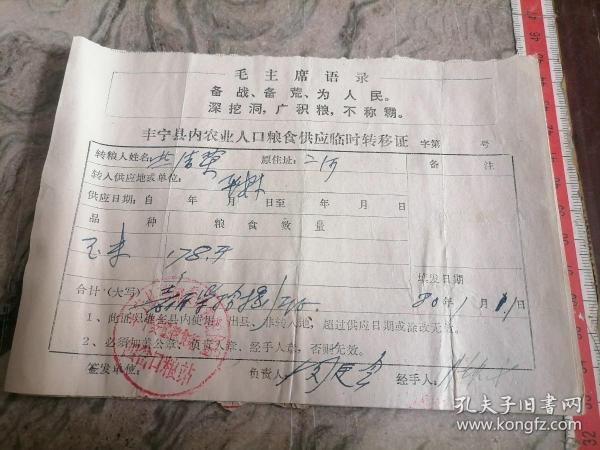 毛主席语录
备战、备荒、为人民。
深挖洞，广积粮，不称霸。
丰宁县内农业人口粮食供应临时转移证 字第 号
转粮人姓名: 原住址: 备 注
转入供应地或单位:
供应日期：自 年 月 日至 年 月 日
品 种 粮 食 数 量
玉米 178斤
填发日期
合计（大写） 80年1月11日
1、此证只准在县内使用，出县、非转入地，超过供应日期或涂改无效。
2、必须加盖公章，负责人章，经手人章，否则无效。
签发单位: 负责人 经手人
孔夫子旧书网
www.kongfz.com